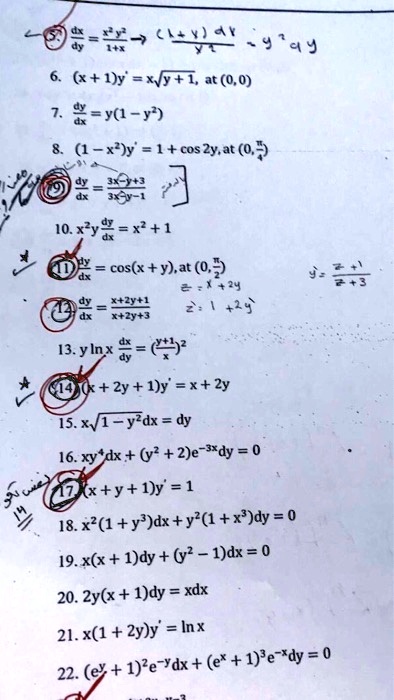 5. dx/dy = x²y²/1+x → (1+x) dx/x² = y² dy
6. (x + 1)y' = x√y + 1, at (0,0)
7. dy/dx = y(1 − y²)
8. (1 − x²)y' = 1 + cos 2y, at (0, π/4)
9. dy/dx = 3x−y+3/3x−y−1
10. x²y dy/dx = x² + 1
11. dy/dx = cos(x + y), at (0, π/2)
y' = z+1/z+3
z = x + 2y
12. dy/dx = x+2y+1/x+2y+3
z' = 1 + 2y'
13. y ln x dx/dy = (y+1/x)²
14. (x + 2y + 1)y' = x + 2y
15. x√1 − y² dx = dy
16. xy⁴dx + (y² + 2)e⁻³ˣdy = 0
17. (x + y + 1)y' = 1
18. x²(1 + y³)dx + y²(1 + x³)dy = 0
19. x(x + 1)dy + (y² − 1)dx = 0
20. 2y(x + 1)dy = xdx
21. x(1 + 2y)y' = ln x
22. (eʸ + 1)²e⁻ʸdx + (eˣ + 1)³e⁻ˣdy = 0